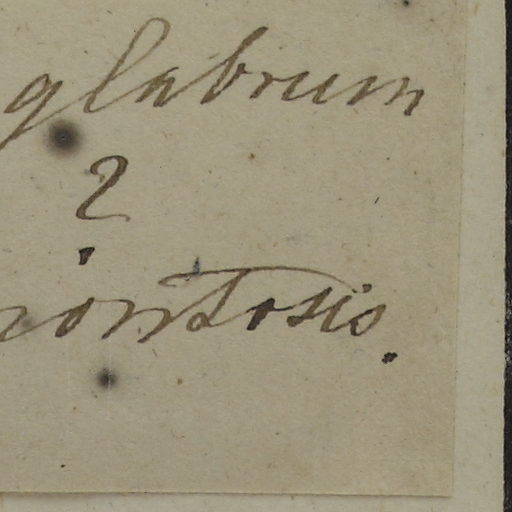 glabrum
?
montosis.